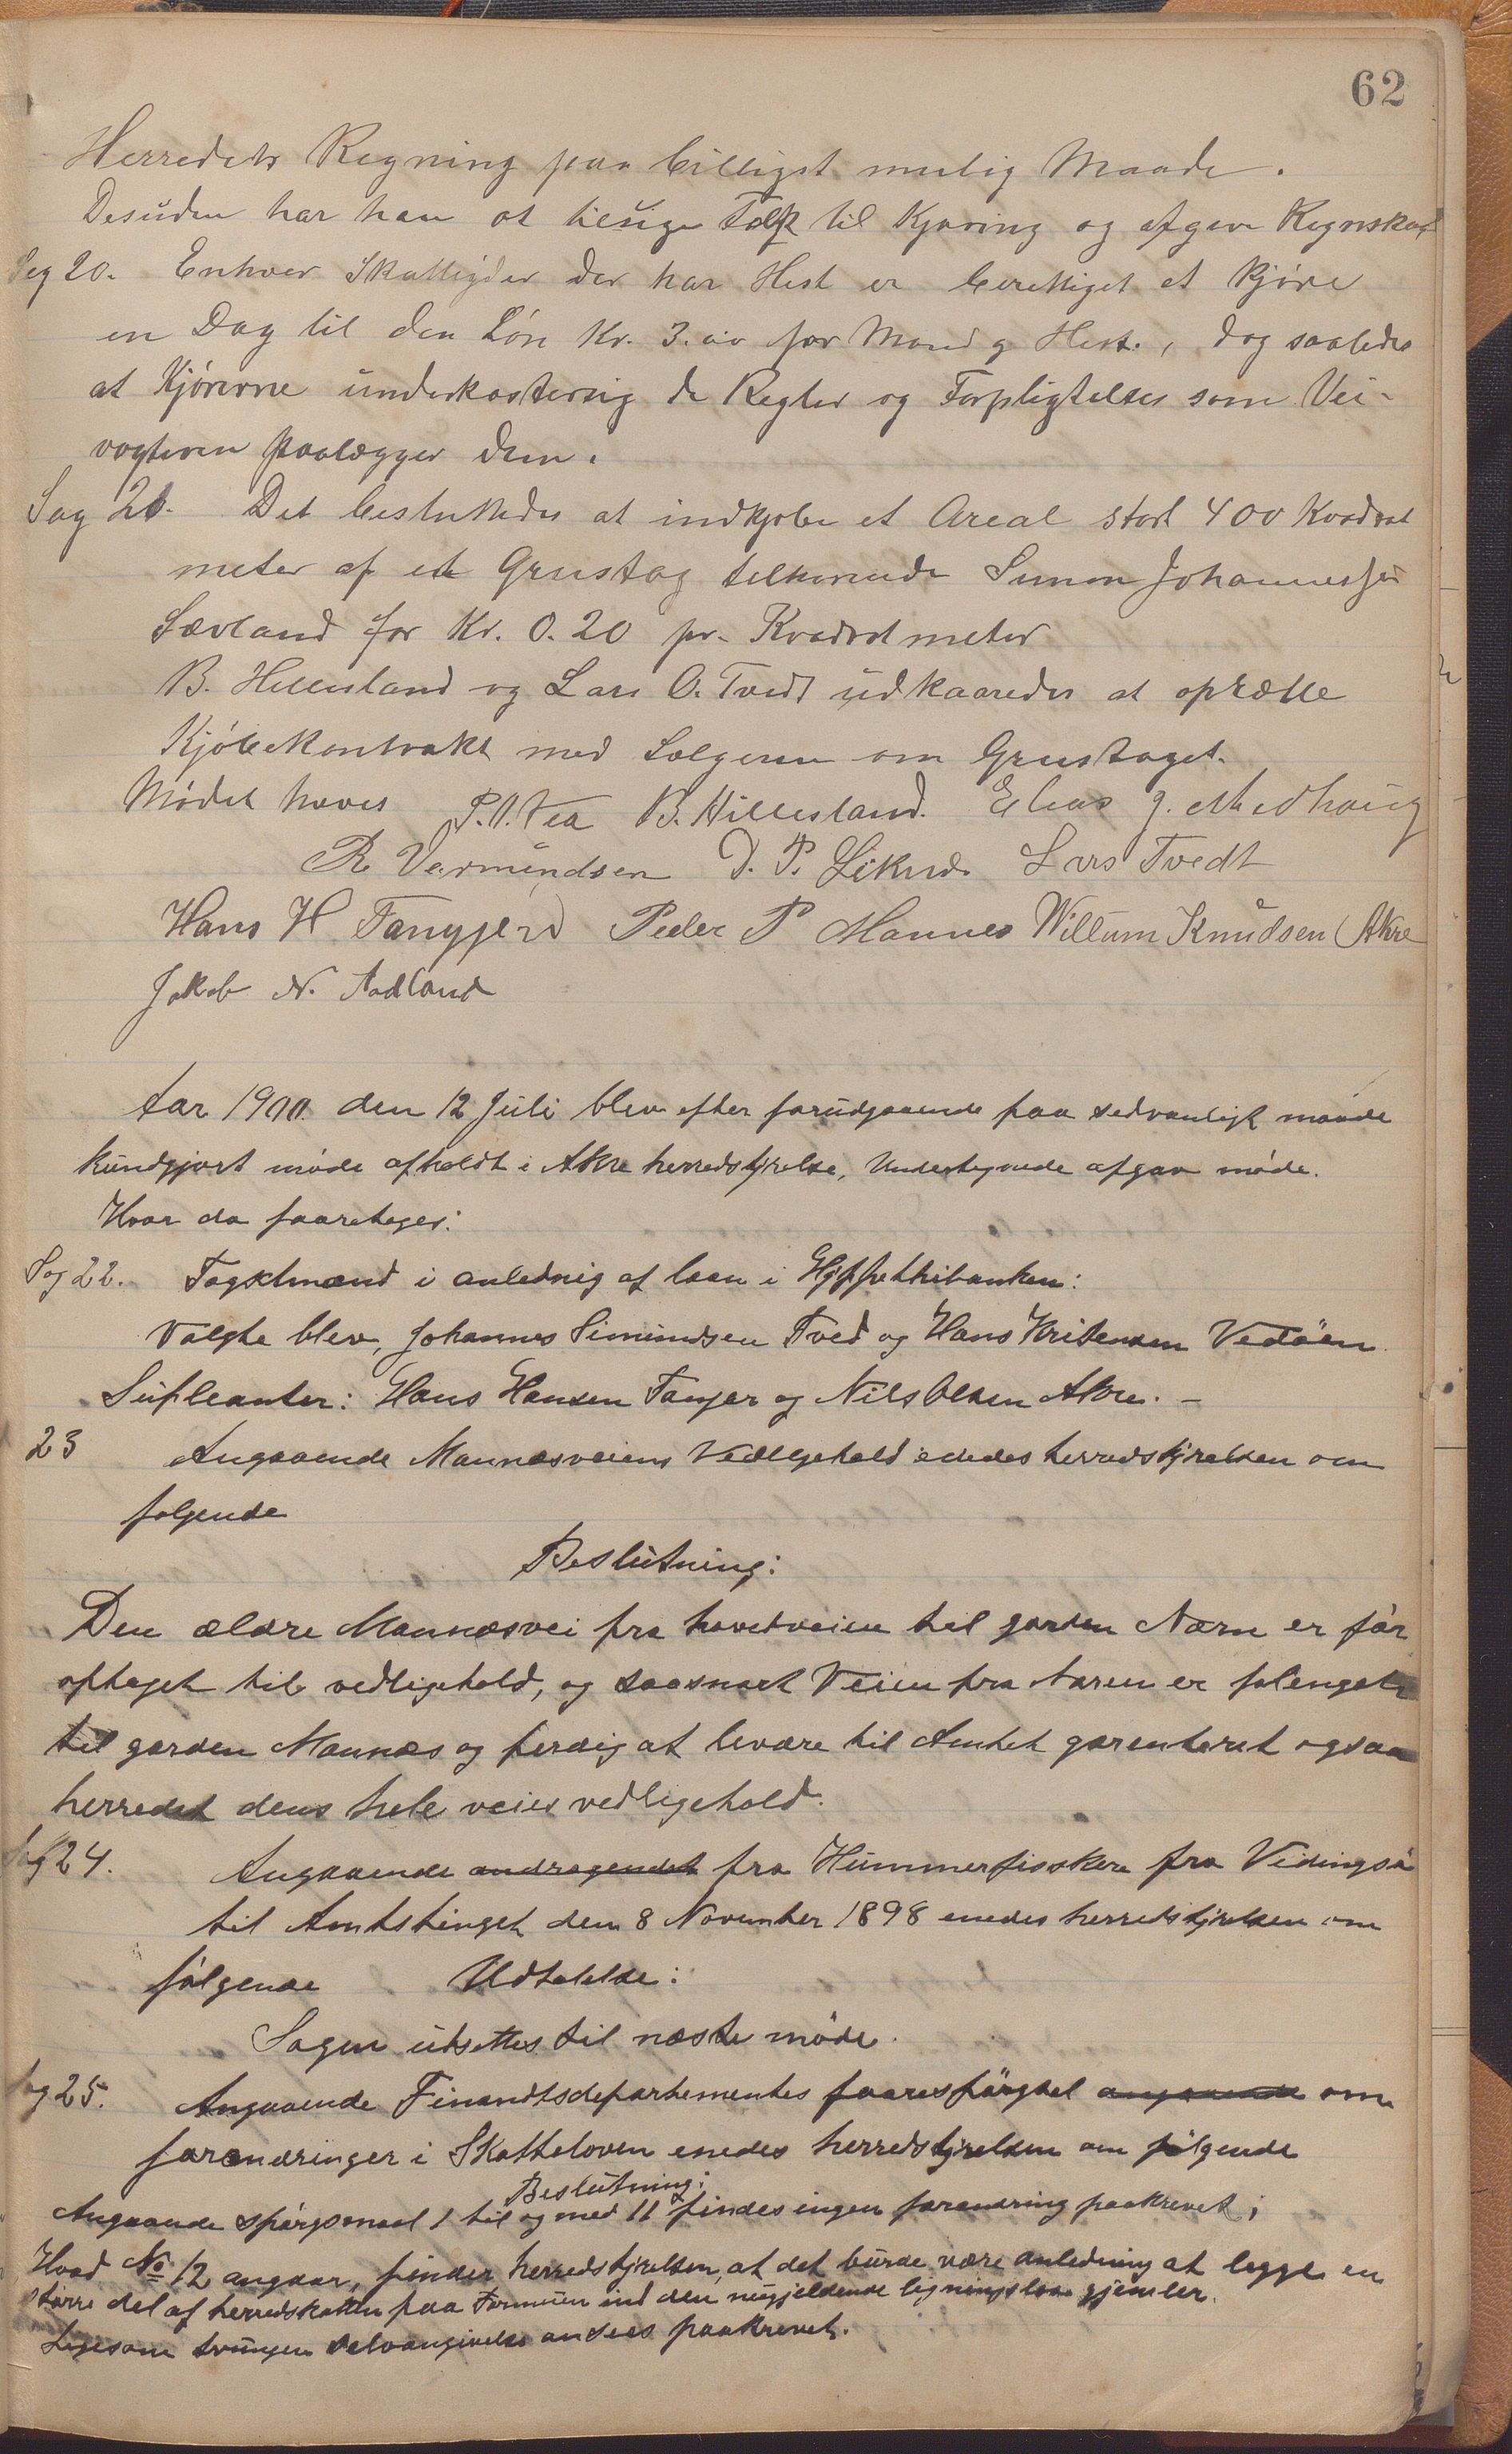 62
Herredets Regning paa billigst mulig Maade.
Desuden har han at tilsige Folk til Kjøring og afgive Regnskab
Sag 20. Enhver Skatteyder der har Hest er berettiget at kjøre
en Dag til den Løn Kr. 3.00 for Mand og Hest., dog saaledes
at Kjørerne underkastersig de Regler og Forpligtelser som Vei-
vogteren paalægger dem.
Sag 21. Det besluttedes at indkjøbe et Areal stort 400 Kvadrat
meter af et Grustag tilhørende Simon Johannessen
Sævland for Kr. 0.20 pr. Kvadratmeter
B. Hillesland og Lars O. Tvedt udkaaredes at oprætte
Kjøbekontrakt med Sælgeren om Grustaget.
Mødet hævet P. O. Vea B. Hillesland. Elias J. Medhaug
R Vermundsen D. P. Liknes Lars Tvedt
Hans H Tangjerd Peder P Mannes Willum Knudsen Akre
Jakob N. Aadland
Aar 1900. den 12 Juli blev efter forudgaaende paa sedvanligt maade
kundgjort møde afholdt i Akre herredstyrelse, Undertegnede afgav møde.
Hvor da faaretoges:
Sag 22. Tagstmænd i anledning af laan i Hyppothekbanken:
Valgte blev, Johannes Simundsen Tved og Hans Kristensen Vedøen
Supleanter: Hans Hansen Tanger og Nils Olsen Akre. –
23 Angaaende Mannæsveiens Vedlgehold enedes herredstyrelsen om
følgende
Beslutning:
Den ældre Mannæsvei fra hovedveien til garden Nærn er før
optaget til vedligehold, og saasnart Veien fra Naren er forlenget
til garden Mannæs og ferdig at levere til Amtet garenteret ogsaa
herredet dens hele veies vedligehold.
Sag 24. Angaaende andragendet fra Hummerfisskere fra Vedingsø
til Amtstinget den 8 November 1898 enedes herredstyrelsen om
følgende Udtalelse:
Sagen utsettes til næste møde.
Sag 25. Angaaende Finandtsdepartementes faarespørgsel angaaende om
forændringer i Skatteloven enedes herredstyrelsen om følgende
Beslutning:
Angaande spørgsmaal 1 til og med 11 findes ingen forandring paakrevet;
Hvad No 12 angaar, finder herredstyrelsen, at det burde være anledning at legge en
større del af herredskatten paa Formuen ind den nugjeldende ligningslov gjemler.
Ligesom tvungen selvangivelse ansees paakrevet.